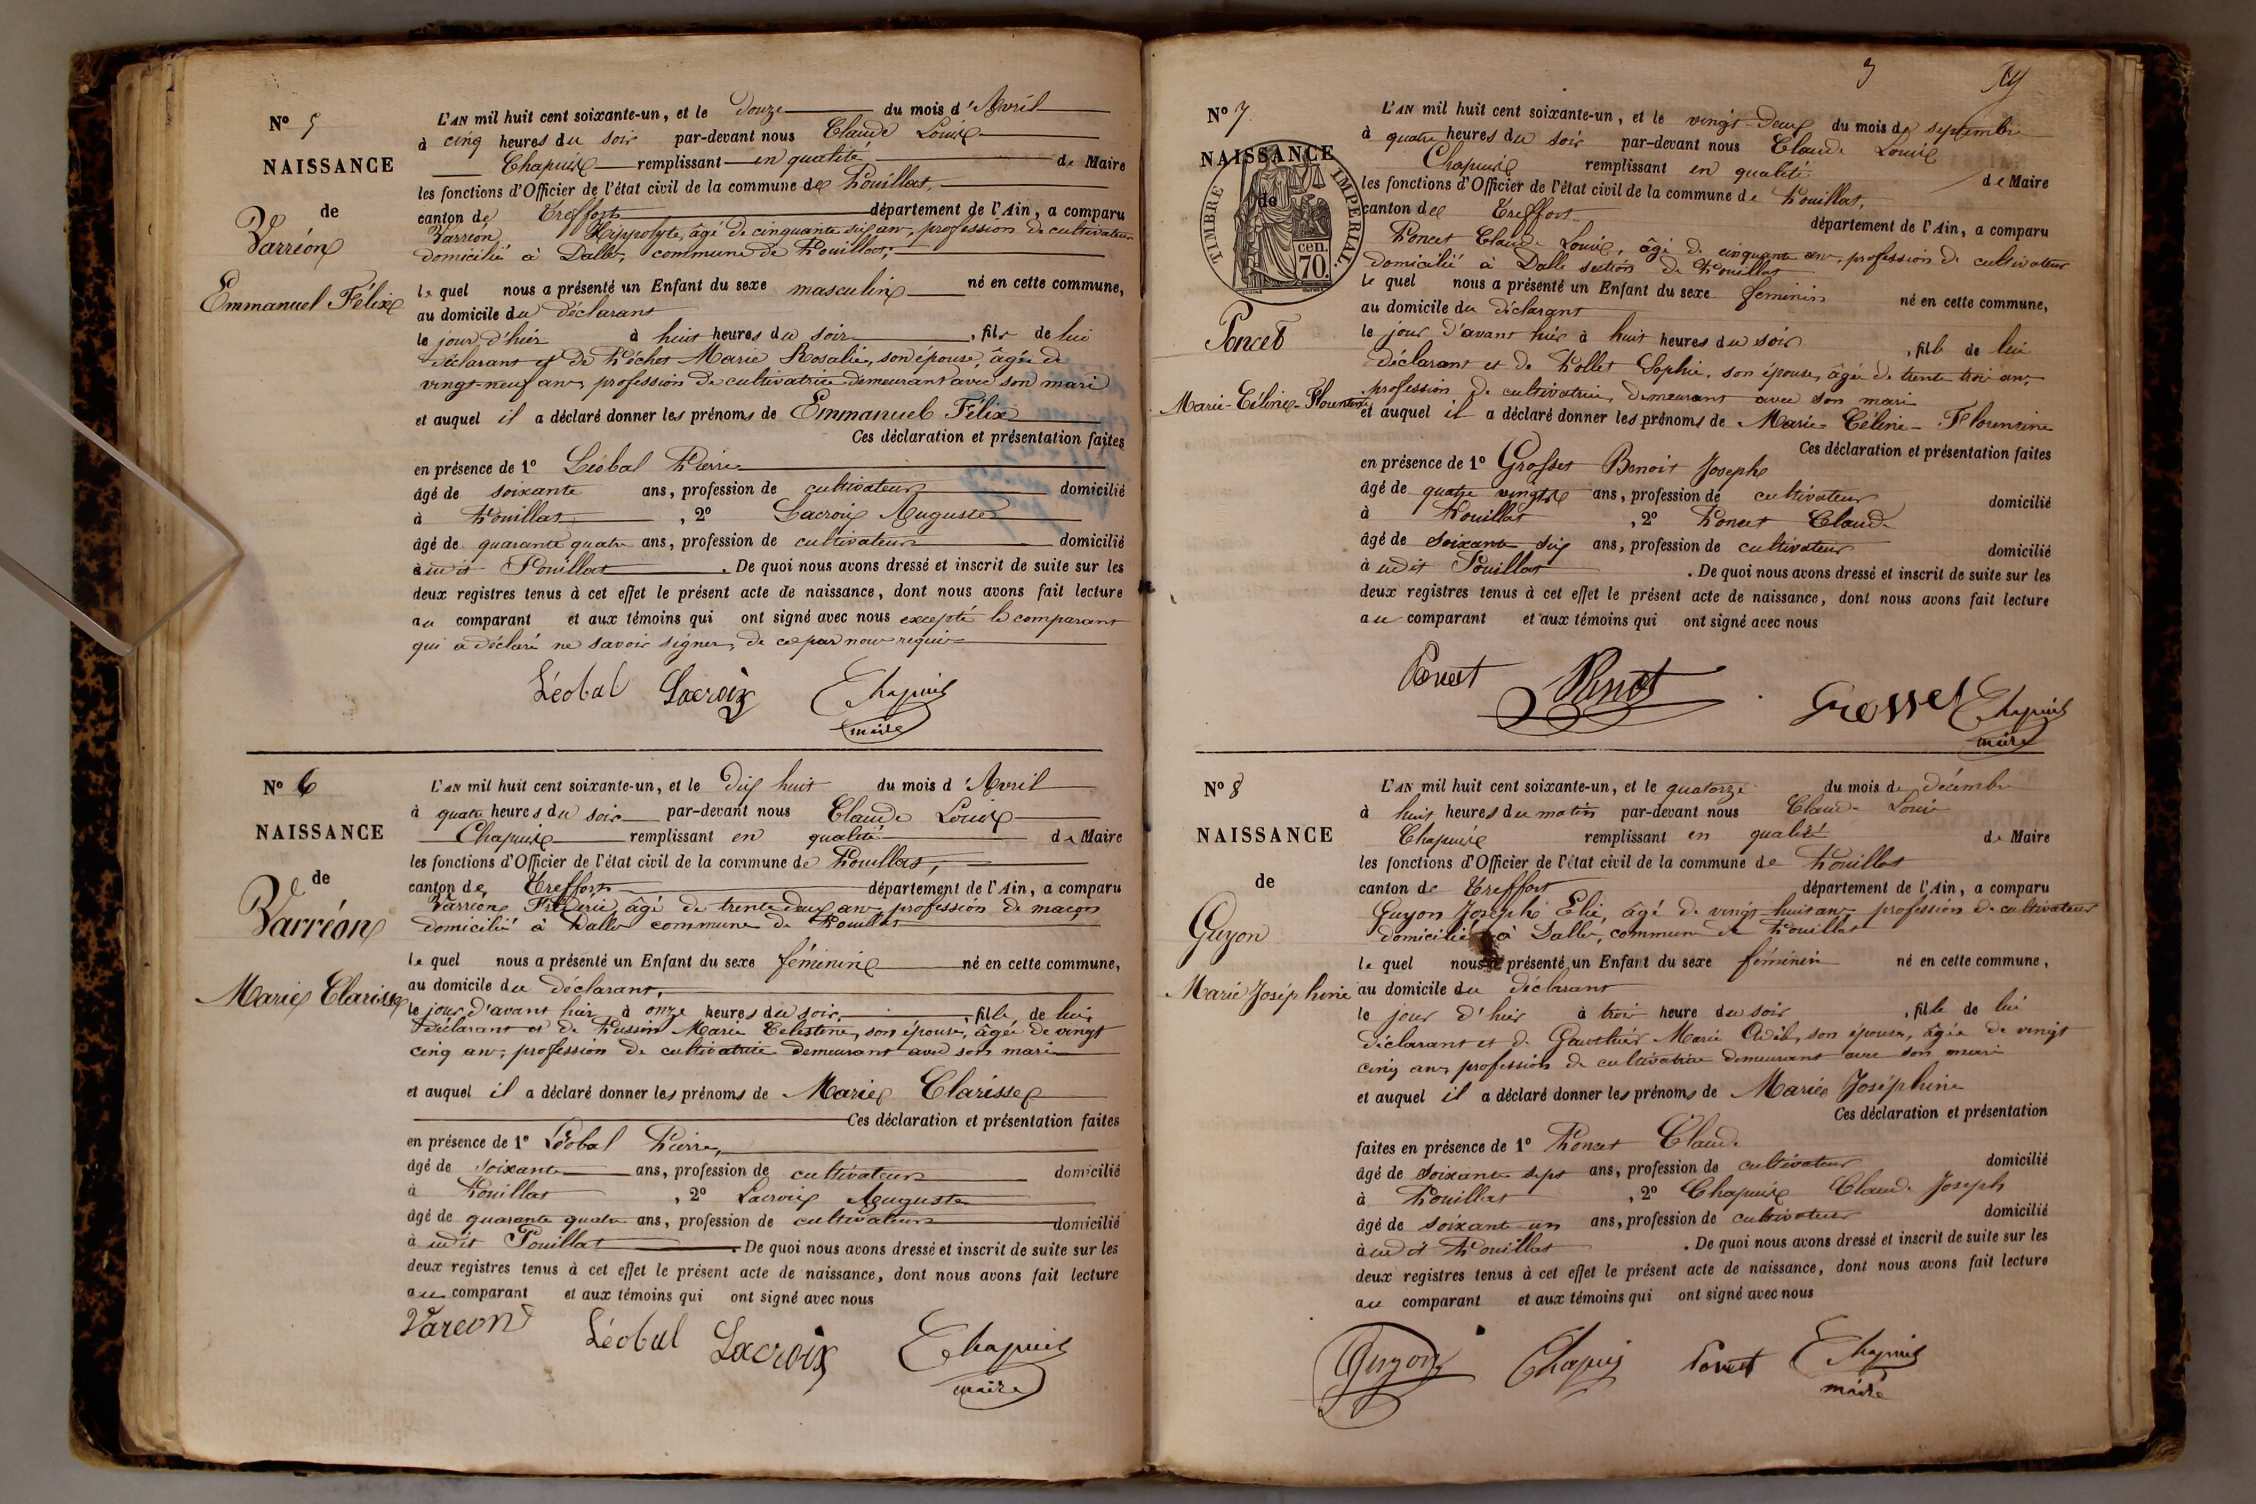 Nº 5
NAISSANCE
de
Varréon
Emmanuel Félix
L'AN mil huit cent soixante-un, et le douze du mois d'Avril
à cinq heures du soir par-devant nous Claude Louis
Chapuis remplissant en qualité de Maire
les fonctions d'Officier de l'état civil de la commune de Pouillat,
canton de Treffort département de l'Ain, a comparu
Varréon Hippolyte, âgé de cinquante six ans, profession de cultivateur
domicilié à Dalles, commune de Pouillat,
le quel nous a présenté un Enfant du sexe masculin né en cette commune,
au domicile du déclarant
le jour d'hier à huit heures du soir, fils de lui
déclarant et de Péchot Marie Rosalie, son épouse, âgée de
vingt-neuf ans, profession de cultivatrice demeurant avec son mari
et auquel il a déclaré donner les prénoms de Emmanuel Félix
Ces déclaration et présentation faites
en présence de 1º Léobal Pierre
âgé de soixante ans, profession de cultivateur domicilié
à Pouillat, 2º Lacroix Auguste
âgé de quarante quatre ans, profession de cultivateur domicilié
à udit Pouillat. De quoi nous avons dressé et inscrit de suite sur les
deux registres tenus à cet effet le présent acte de naissance, dont nous avons fait lecture
au comparant et aux témoins qui ont signé avec nous excepté le comparant
qui a déclaré ne savoir signer, de ce par nous requis
Léobal Lacroix Chapuis
maire
Nº 6
NAISSANCE
de
Varréon
Marie Clarisse
L'AN mil huit cent soixante-un, et le dix huit du mois d'Avril
à quatre heures du soir par-devant nous Claude Louis
Chapuis remplissant en qualité de Maire
les fonctions d'Officier de l'état civil de la commune de Pouillat,
canton de Treffort département de l'Ain, a comparu
Varréon Fréderic âgé de trente deux ans profession de maçon
domicilié à Dalles commune de Pouillat
le quel nous a présenté un Enfant du sexe féminin né en cette commune,
au domicile du déclarant,
le jour d'avant hier à onze heures du soir, fille de lui,
déclarant et de Pussin Marie Celestine, son épouse, âgée de vingt
cinq ans, profession de cultivatrice demeurant avec son mari
et auquel il a déclaré donner les prénoms de Marie Clarisse
Ces déclaration et présentation faites
en présence de 1º Léobal Pierre,
âgé de soixante ans, profession de cultivateur domicilié
à Pouillat, 2º Lacroix Auguste
âgé de quarante quatre ans, profession de cultivateur domicilié
à udit Pouillat. De quoi nous avons dressé et inscrit de suite sur les
deux registres tenus à cet effet le présent acte de naissance, dont nous avons fait lecture
au comparant et aux témoins qui ont signé avec nous
Vareon Léobal Lacroix Chapuis
maire
3
Nº 7
NAISSANCE
de
TIMBRE IMPERIAL.
cen.
70.
Poncet
Marie-Céline-Florentine
L'AN mil huit cent soixante-un, et le vingt-deux du mois de septembre
à quatre heures du soir par-devant nous Claude Louis
Chapuis remplissant en qualité de Maire
les fonctions d'Officier de l'état civil de la commune de Pouillat,
canton de Treffort département de l'Ain, a comparu
Poncet Claude Louis, âgé de cinquante ans, profession de cultivateur
domicilié à Dalle section de Pouillat
le quel nous a présenté un Enfant du sexe féminin né en cette commune,
au domicile du déclarant
le jour d'avant hier à huit heures du soir, fille de lui
déclarant et de Pollet Sophie, son épouse, âgée de trente trois ans,
profession de cultivatrice, demeurant avec son mari
et auquel il a déclaré donner les prénoms de Marie Céline - Florentine
Ces déclaration et présentation faites
en présence de 1º Grosset Benoit Joseph
âgé de quatre vingts ans, profession de cultivateur domicilié
à Pouillat, 2º Poncet Claude
âgé de soixante six ans, profession de cultivateur domicilié
à udit Pouillat. De quoi nous avons dressé et inscrit de suite sur les
deux registres tenus à cet effet le présent acte de naissance, dont nous avons fait lecture
au comparant et aux témoins qui ont signé avec nous
Poncet Grosset Chapuis
maire
Nº 8
NAISSANCE
de
Guyon
Marie Joséphine
L'AN mil huit cent soixante-un, et le quatorze du mois de décembre
à huit heures du matin par-devant nous Claude Louis
Chapuis remplissant en qualité de Maire
les fonctions d'Officier de l'état civil de la commune de Pouillat
canton de Treffort département de l'Ain, a comparu
Guyon Joseph Elie, âgé de vingt-huit ans profession de cultivateur
domicilié à Dalles, commune de Pouillat
le quel nous a présenté un Enfant du sexe féminin né en cette commune,
au domicile du déclarant
le jour d'hier à trois heure du soir, fille de lui
déclarant et de Gauthier Marie Adèle, son épouse, âgée de vingt
cinq ans profession de cultivatrice demeurant avec son mari
et auquel il a déclaré donner les prénoms de Marie Joséphine
Ces déclaration et présentation
faites en présence de 1º Poncet Claude
âgé de soixante sept ans, profession de cultivateur domicilié
à Pouillat, 2º Chapuis Claude Joseph
âgé de soixante un ans, profession de cultivateur domicilié
à udit Pouillat. De quoi nous avons dressé et inscrit de suite sur les
deux registres tenus à cet effet le présent acte de naissance, dont nous avons fait lecture
au comparant et aux témoins qui ont signé avec nous
Guyon Chapuis Poncet Chapuis
maire